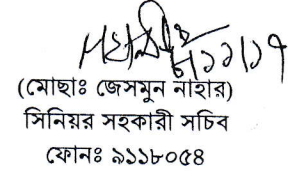 (মোছাঃ জেসমুন নাহার)
সিনিয়র সহকারী সচিব
ফোনঃ ৯১১৮০৫৪